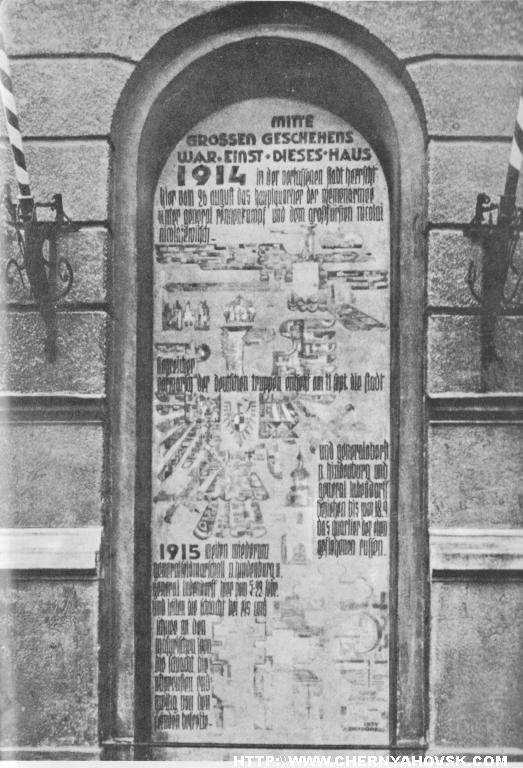 MITTE
GROSSEN GESCHEHENS
WAR·EINST·DIESES·HAUS
1914 in der verlassenen stadt herrscht
hier vom 26 august das hauptquartier der njemenarmee
unter general rennenkampf und dem großfürsten nicolai
nicolajewitsch
siegreicher
vormarsch der deutschen truppen entsetzt am 11 sept. die stadt
und generaloberst
v. hindenburg und
general ludendorff
beziehen bis zum 18.9
das quartier der eben
geflohenen russen.
1915 weilen wiederum
generalfeldmarschall v. hindenburg u.
general ludendorff hier vom
und leiten die schlacht bei
in den
masurischen
die schlacht die
von den
HTTP://WWW.CHERNYAHOVSK.COM